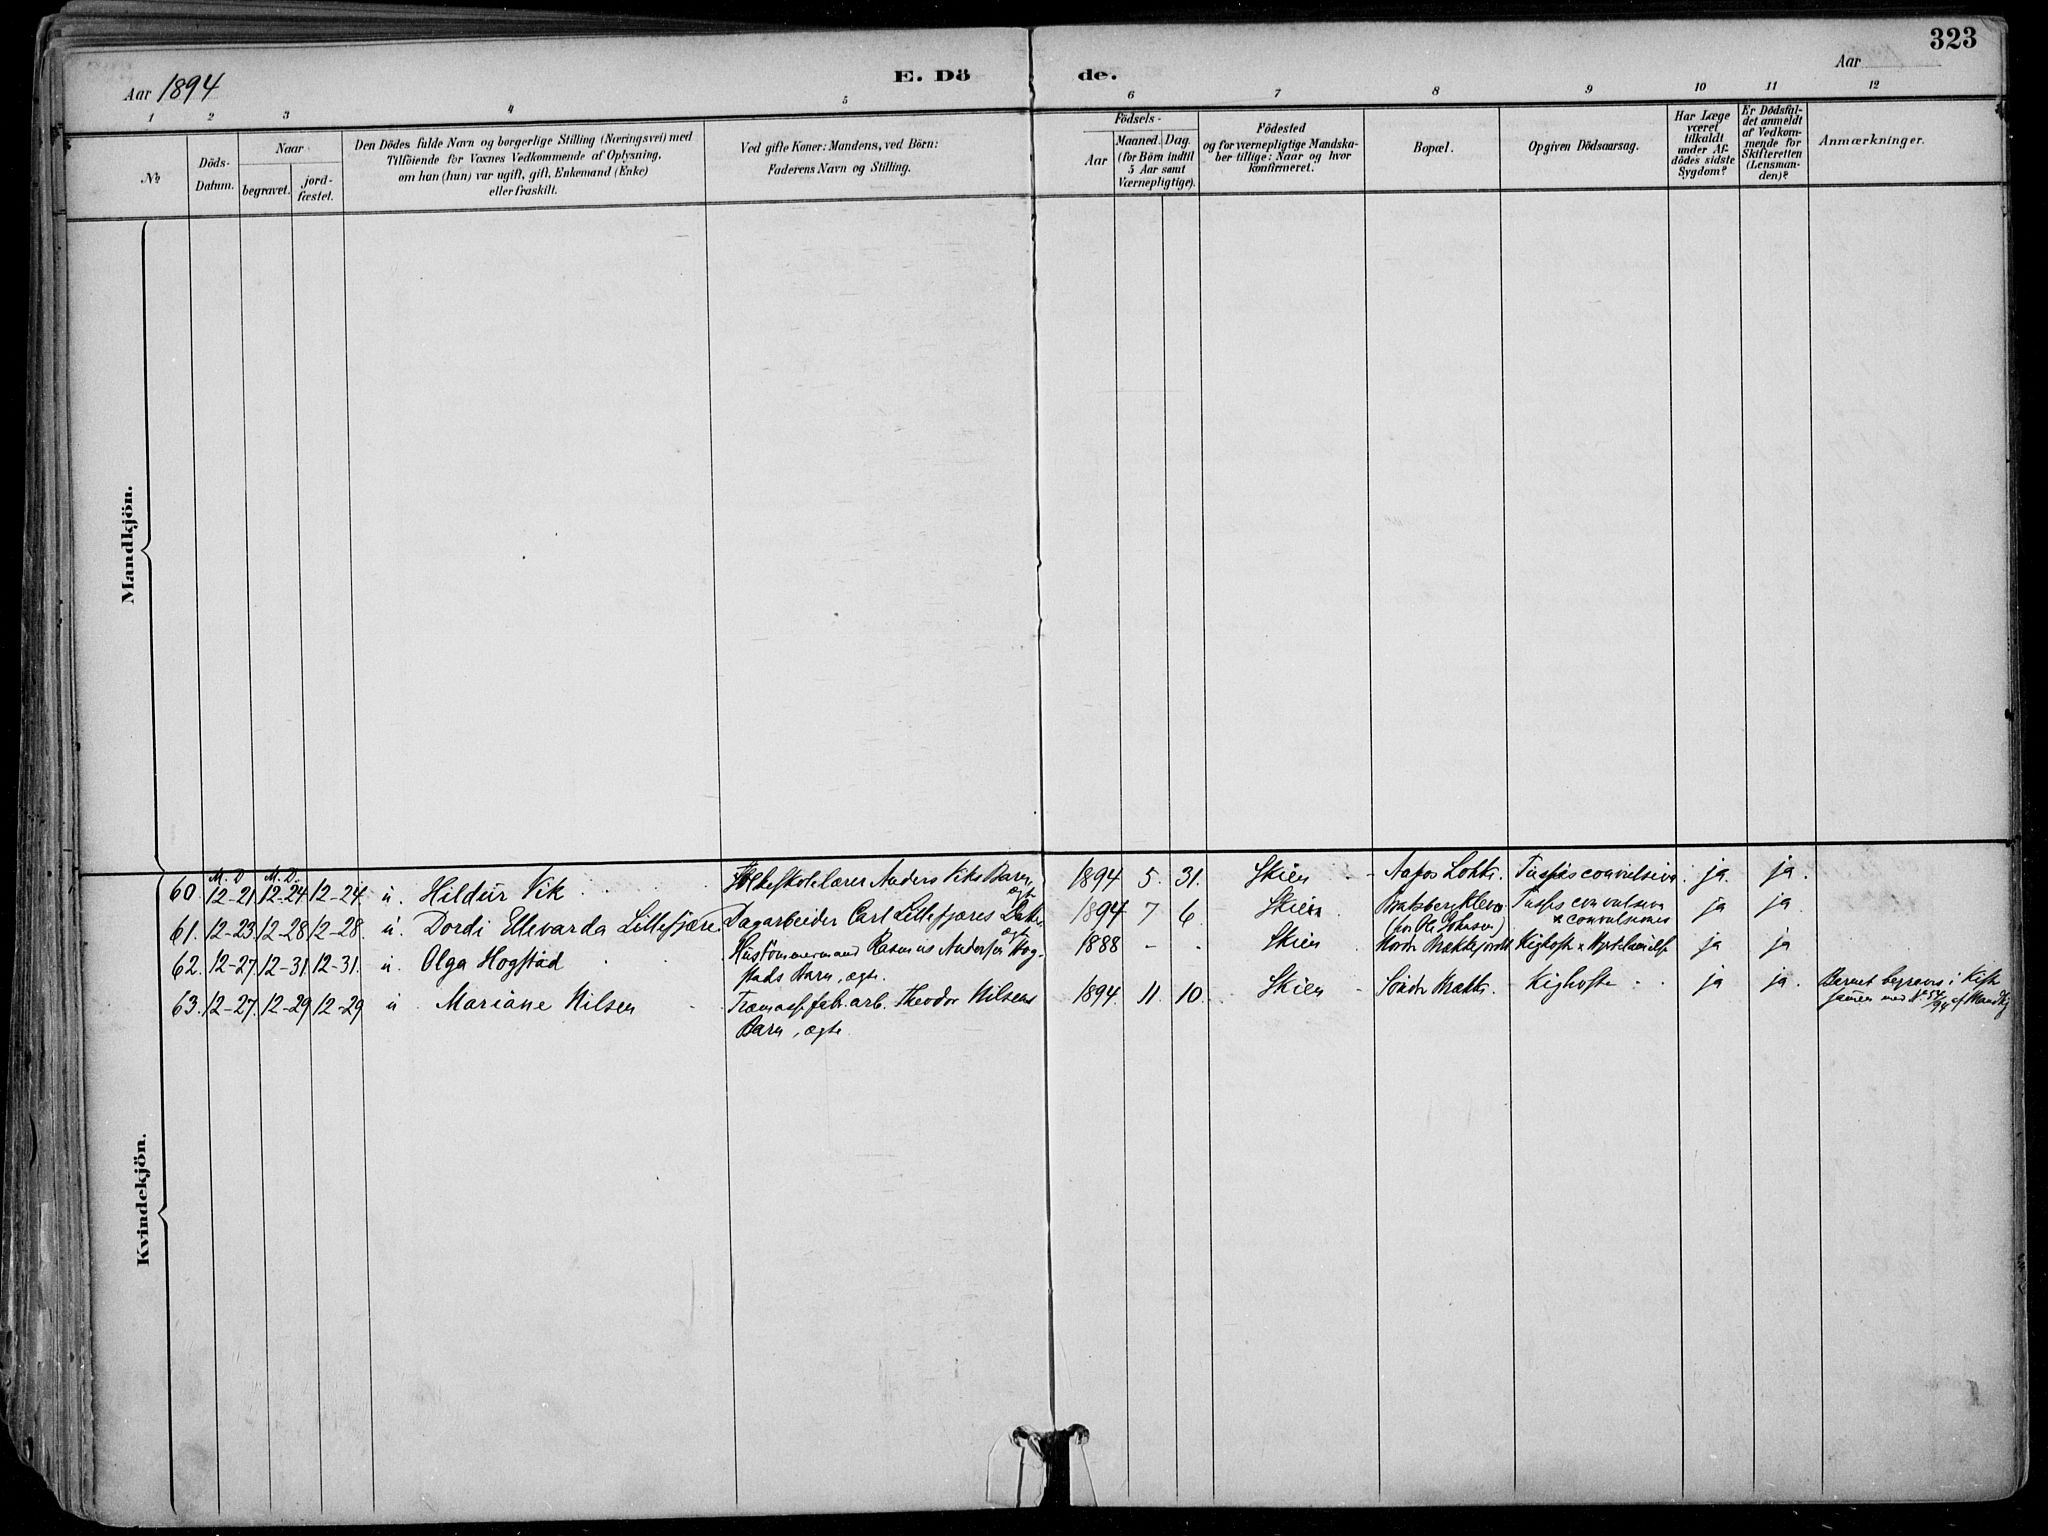 323
Aar 1894
E. Dö de.
Aar
1 2 3 4 5 6 7 8 9 10 11 12
№
Döds-
Datum.
Naar
begravet.
jord-
fæstet.
Den Dödes fulde Navn og borgerlige Stilling (Næringsvei) med
Tilföiende for Voxnes Vedkommende af Oplysning,
om han (hun) var ugift, gift, Enkemand (Enke)
eller fraskilt.
Ved gifte Koner: Mandens, ved Börn:
Faderens Navn og Stilling.
Födsels-
Aar
Maaned. Dag.
(for Börn indtil
5 Aar samt
Værnepligtige).
Födested
og for værnepligtige Mandska-
ber tillige: Naar og hvor
konfirmeret.
Bopæl.
Opgiven Dödsaarsag.
Har Læge
været
tilkaldt
under Af-
dödes sidste
Sygdom?
Er Dödsfal-
det anmeldt
af Vedkom-
mende for
Skifteretten
(Lensman-
den)?
Anmærkninger.
Mandkjön.
Kvindekjön.
M. D. M. D.
60. 12-21. 12-24 12-24 u. Hildur Vik Folkeskolelærer Anders Viks Barn, ægte 1894 5. 31. Skien Aafos Tussis convulsiva ja. ja.
61. 12-23. 12-28 12-28. u. Dordi Ellevarda Lillefjære. Dagarbeider Carl Lillefjæres Datter ægte 1894 7 6. Skien Bratsbergkleva Tussis convulsiva ja ja
(hos Ole Johnsen) & convulsiones
62. 12-27. 12-31. 12-31. u. Olga Hogstad Hustömmermand Rasmus Anderssön Hog- 1888 - - Skien Nordr Kighoste & ja ja
stads Barn, ægte.
63. 12-27. 12-29 12-29 u Mariane Nilsen Træmasf.fab.arb. Theodor Nilsens 1894. 11. 10. Skien Söndr Kighoste ja ja. Barnet begraves i Kiste
Barn, ægte. sammen med N° 54/94 af Mandkj